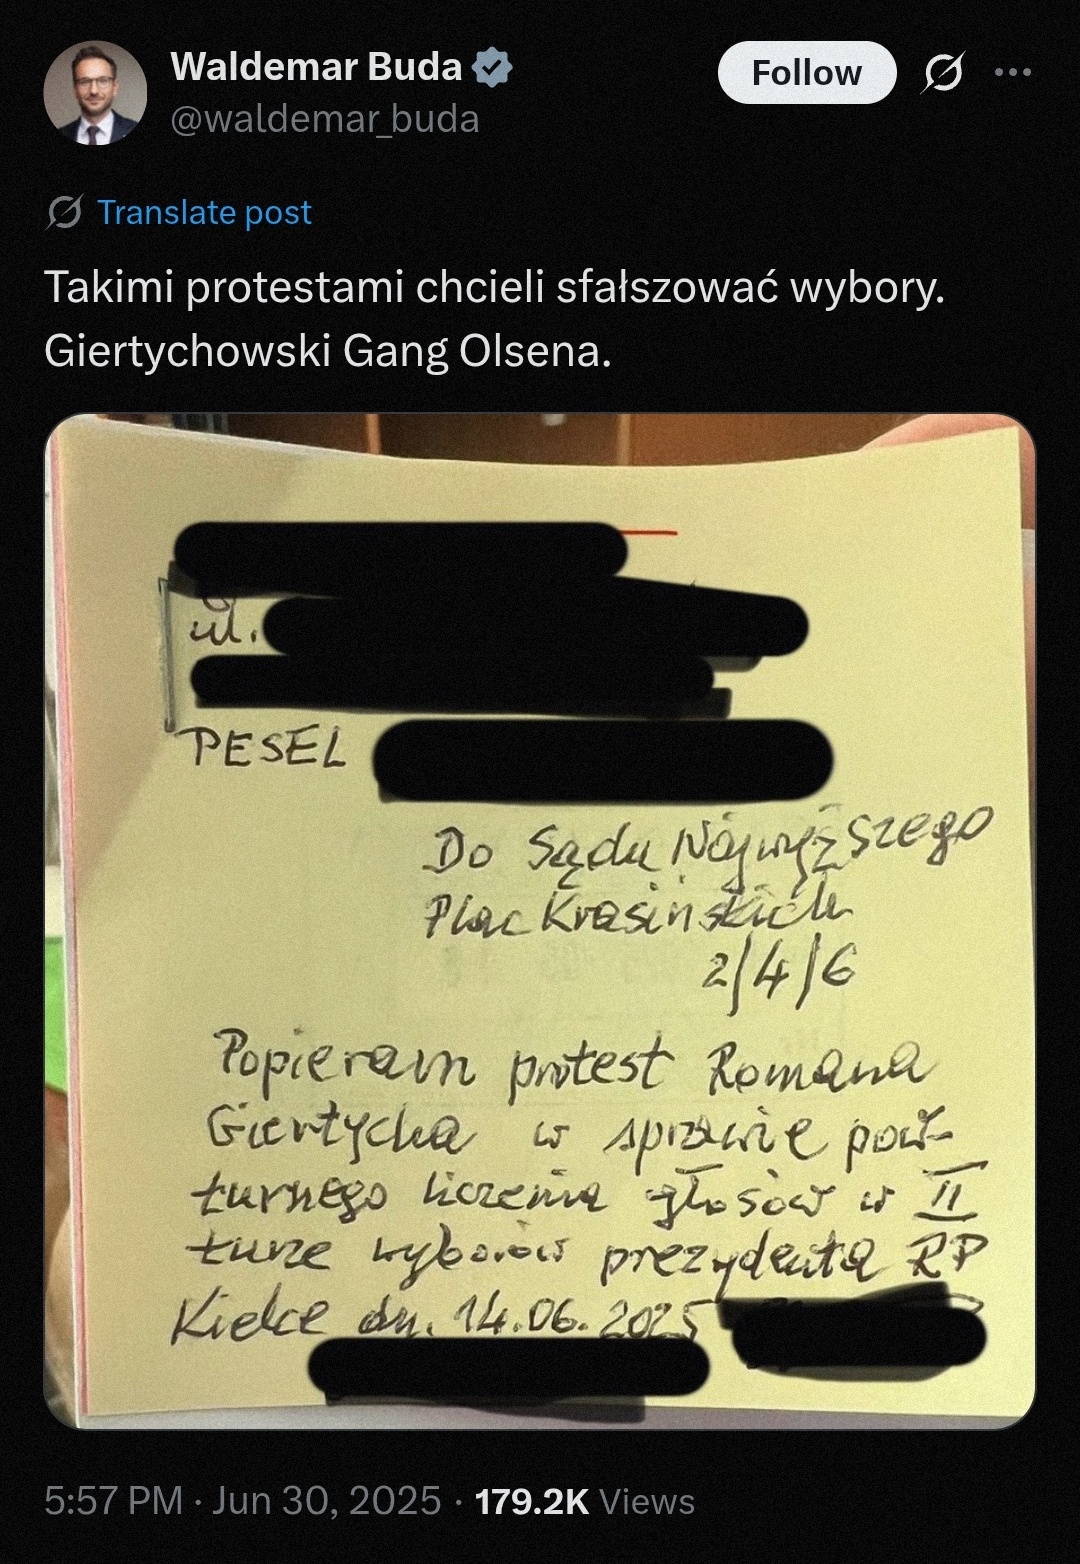 Waldemar Buda
@waldemar_buda
Follow
Translate post
Takimi protestami chcieli sfałszować wybory.
Giertychowski Gang Olsena.
ul.
PESEL
Do Sądu Najwyższego
Plac Krasińskich
2/4/6
Popieram protest Romana
Giertycha w sprawie pow-
turnego liczenia głosów w II
turze wyborów prezydenta RP
Kielce dn. 14.06.2025
5:57 PM · Jun 30, 2025 · 179.2K Views